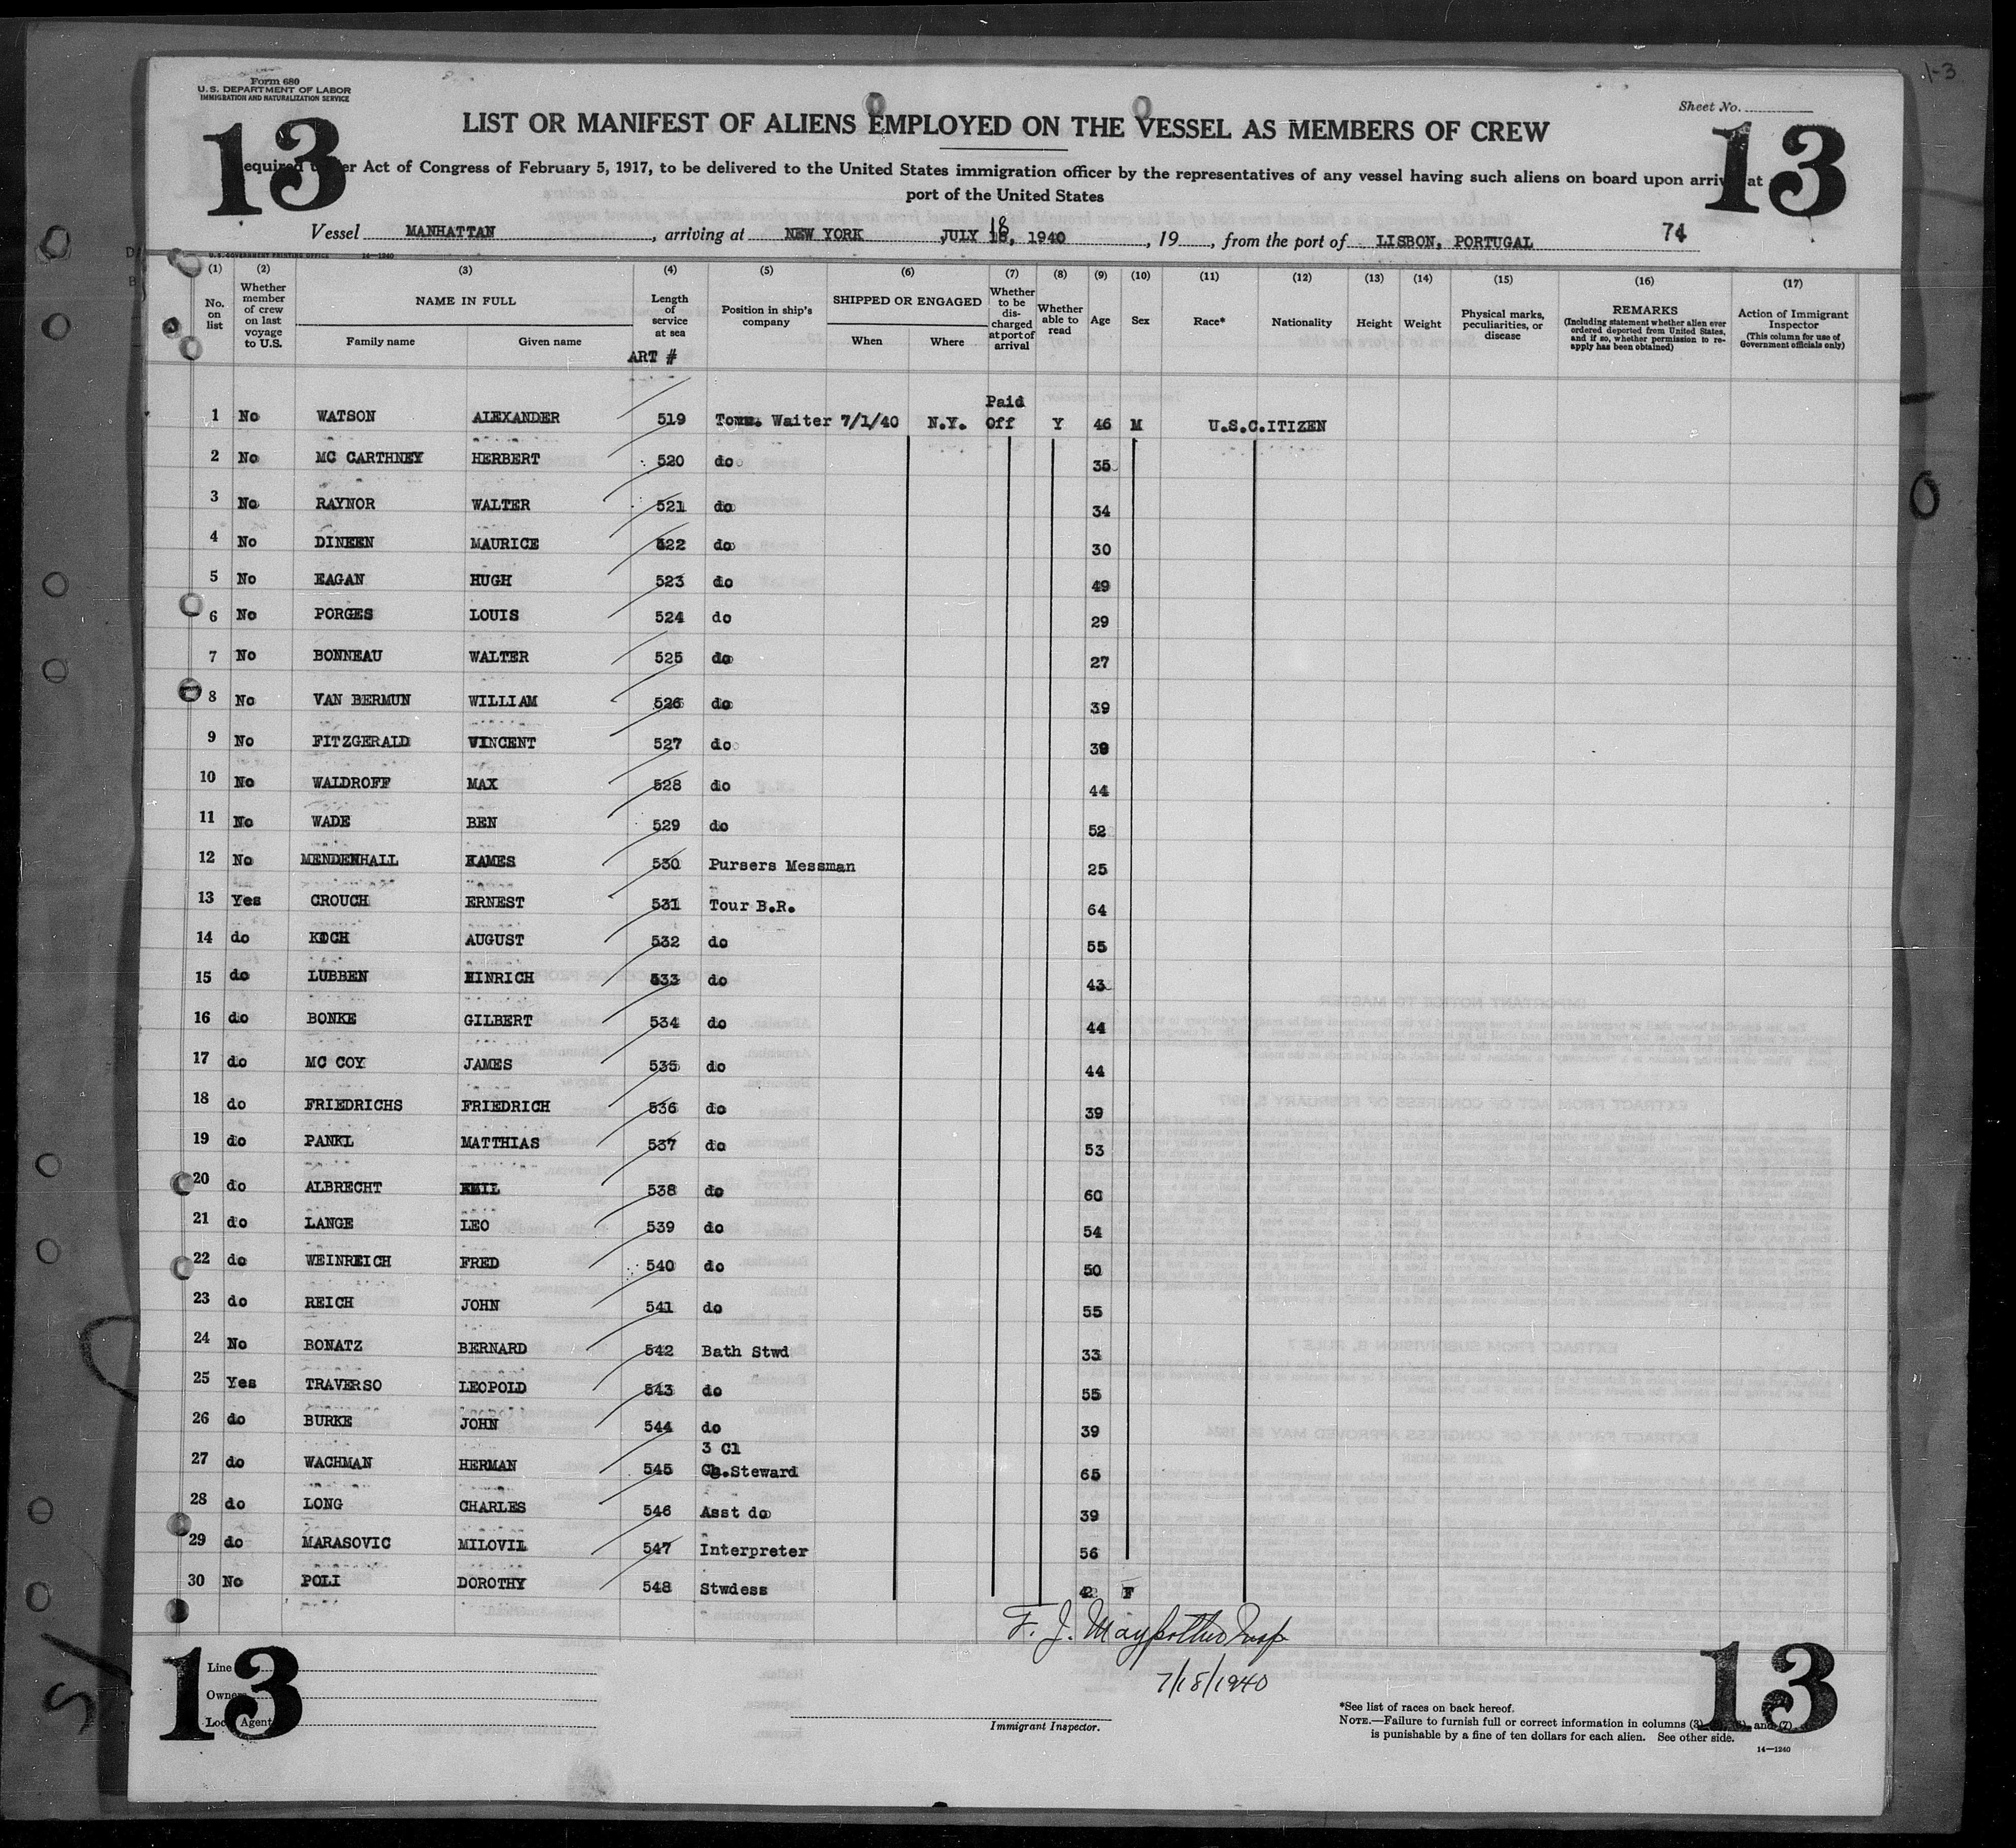 1-3
Form 680
U.S. DEPARTMENT OF LABOR
IMMIGRATION AND NATURALIZATION SERVICE
Sheet No.
13
13
LIST OR MANIFEST OF ALIENS EMPLOYED ON THE VESSEL AS MEMBERS OF CREW
equired under Act of Congress of February 5, 1917, to be delivered to the United States immigration officer by the representatives of any vessel having such aliens on board upon arrival at
port of the United States
Vessel MANHATTAN, arriving at NEW YORK JULY 18, 1940, 19, from the port of LISBON, PORTUGAL 74
U.S. GOVERNMENT PRINTING OFFICE 14—1240
(1) (2) (3) (4) (5) (6) (7) (8) (9) (10) (11) (12) (13) (14) (15) (16) (17)
No. on list
Whether member of crew on last voyage to U.S.
NAME IN FULL
Family name Given name
Length of service at sea
ART #
Position in ship's company
SHIPPED OR ENGAGED
When Where
Whether to be discharged at port of arrival
Whether able to read
Age
Sex
Race*
Nationality
Height
Weight
Physical marks, peculiarities, or disease
REMARKS
(Including statement whether alien ever ordered deported from United States, and if so, whether permission to reapply has been obtained)
Action of Immigrant Inspector
(This column for use of Government officials only)
1 No WATSON ALEXANDER 519 Waiter 7/1/40 N.Y. Paid Off Y 46 M U.S.C.ITIZEN
2 No MC CARTHNEY HERBERT 520 do 35
3 No RAYNOR WALTER 521 do 34
4 No DINEEN MAURICE 522 do 30
5 No EAGAN HUGH 523 do 49
6 No PORGES LOUIS 524 do 29
7 No BONNEAU WALTER 525 do 27
8 No VAN BERMUN WILLIAM 526 do 39
9 No FITZGERALD VINCENT 527 do
10 No WALDROFF MAX 528 do 44
11 No WADE BEN 529 do 52
12 No MENDENHALL 530 Pursers Messman 25
13 Yes CROUCH ERNEST 531 Tour B.R. 64
14 do KOCH AUGUST 532 do 55
15 do LUBBEN HINRICH 533 do 43
16 do BONKE GILBERT 534 do 44
17 do MC COY JAMES 535 do 44
18 do FRIEDRICHS FRIEDRICH 536 do 39
19 do PANKL MATTHIAS 537 do 53
20 do ALBRECHT EMIL 538 do 60
21 do LANGE LEO 539 do 54
22 do WEINREICH FRED 540 do 50
23 do REICH JOHN 541 do 55
24 No BONATZ BERNARD 542 Bath Stwd 33
25 Yes TRAVERSO LEOPOLD 543 do 55
26 do BURKE JOHN 544 do 39
27 do WACHMAN HERMAN 545 3 Cl Ch.Steward 65
28 do LONG CHARLES 546 Asst do 39
29 do MARASOVIC MILOVIL 547 Interpreter 56
30 No POLI DOROTHY 548 Stwdess 42 F
F. J.
7/18/1940
13
13
Line
Owners
Local Agent
Immigrant Inspector.
*See list of races on back hereof.
NOTE.—Failure to furnish full or correct information in columns (3), and (7)
is punishable by a fine of ten dollars for each alien. See other side.
14—1240